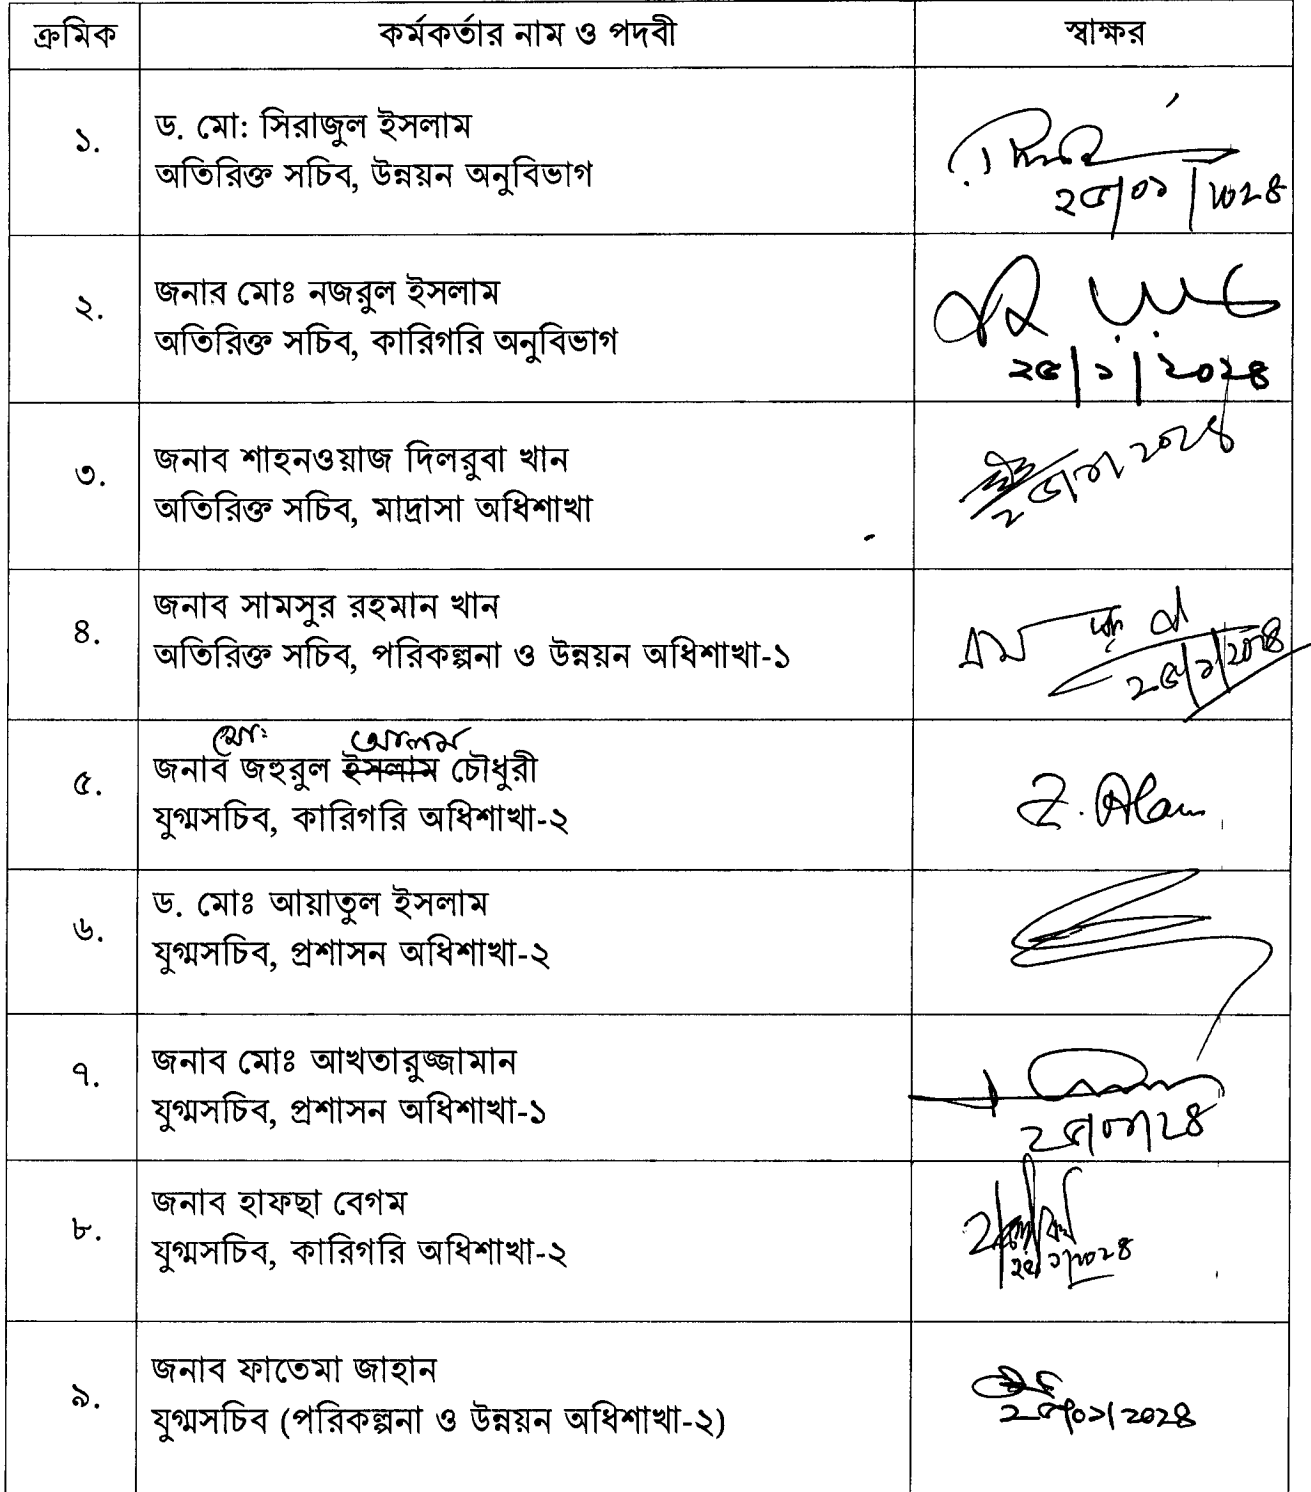 ক্রমিক কর্মকর্তার নাম ও পদবী স্বাক্ষর
১. ড. মো: সিরাজুল ইসলাম
অতিরিক্ত সচিব, উন্নয়ন অনুবিভাগ
২৫/০১/২০২৪
২. জনার মোঃ নজরুল ইসলাম
অতিরিক্ত সচিব, কারিগরি অনুবিভাগ
২৫/১/২০২৪
৩. জনাব শাহনওয়াজ দিলরুবা খান
অতিরিক্ত সচিব, মাদ্রাসা অধিশাখা
৪. জনাব সামসুর রহমান খান
অতিরিক্ত সচিব, পরিকল্পনা ও উন্নয়ন অধিশাখা-১
২৫/১/২০২৪
মো: আলম
৫. জনাব জহুরুল ইসলাম চৌধুরী
যুগ্মসচিব, কারিগরি অধিশাখা-২
Z. Alam
৬. ড. মোঃ আয়াতুল ইসলাম
যুগ্মসচিব, প্রশাসন অধিশাখা-২
৭. জনাব মোঃ আখতারুজ্জামান
যুগ্মসচিব, প্রশাসন অধিশাখা-১
২৫/০১/২৪
৮. জনাব হাফছা বেগম
যুগ্মসচিব, কারিগরি অধিশাখা-২
২৫/১/২০২৪
৯. জনাব ফাতেমা জাহান
যুগ্মসচিব (পরিকল্পনা ও উন্নয়ন অধিশাখা-২)
২৫/০১/২০২৪